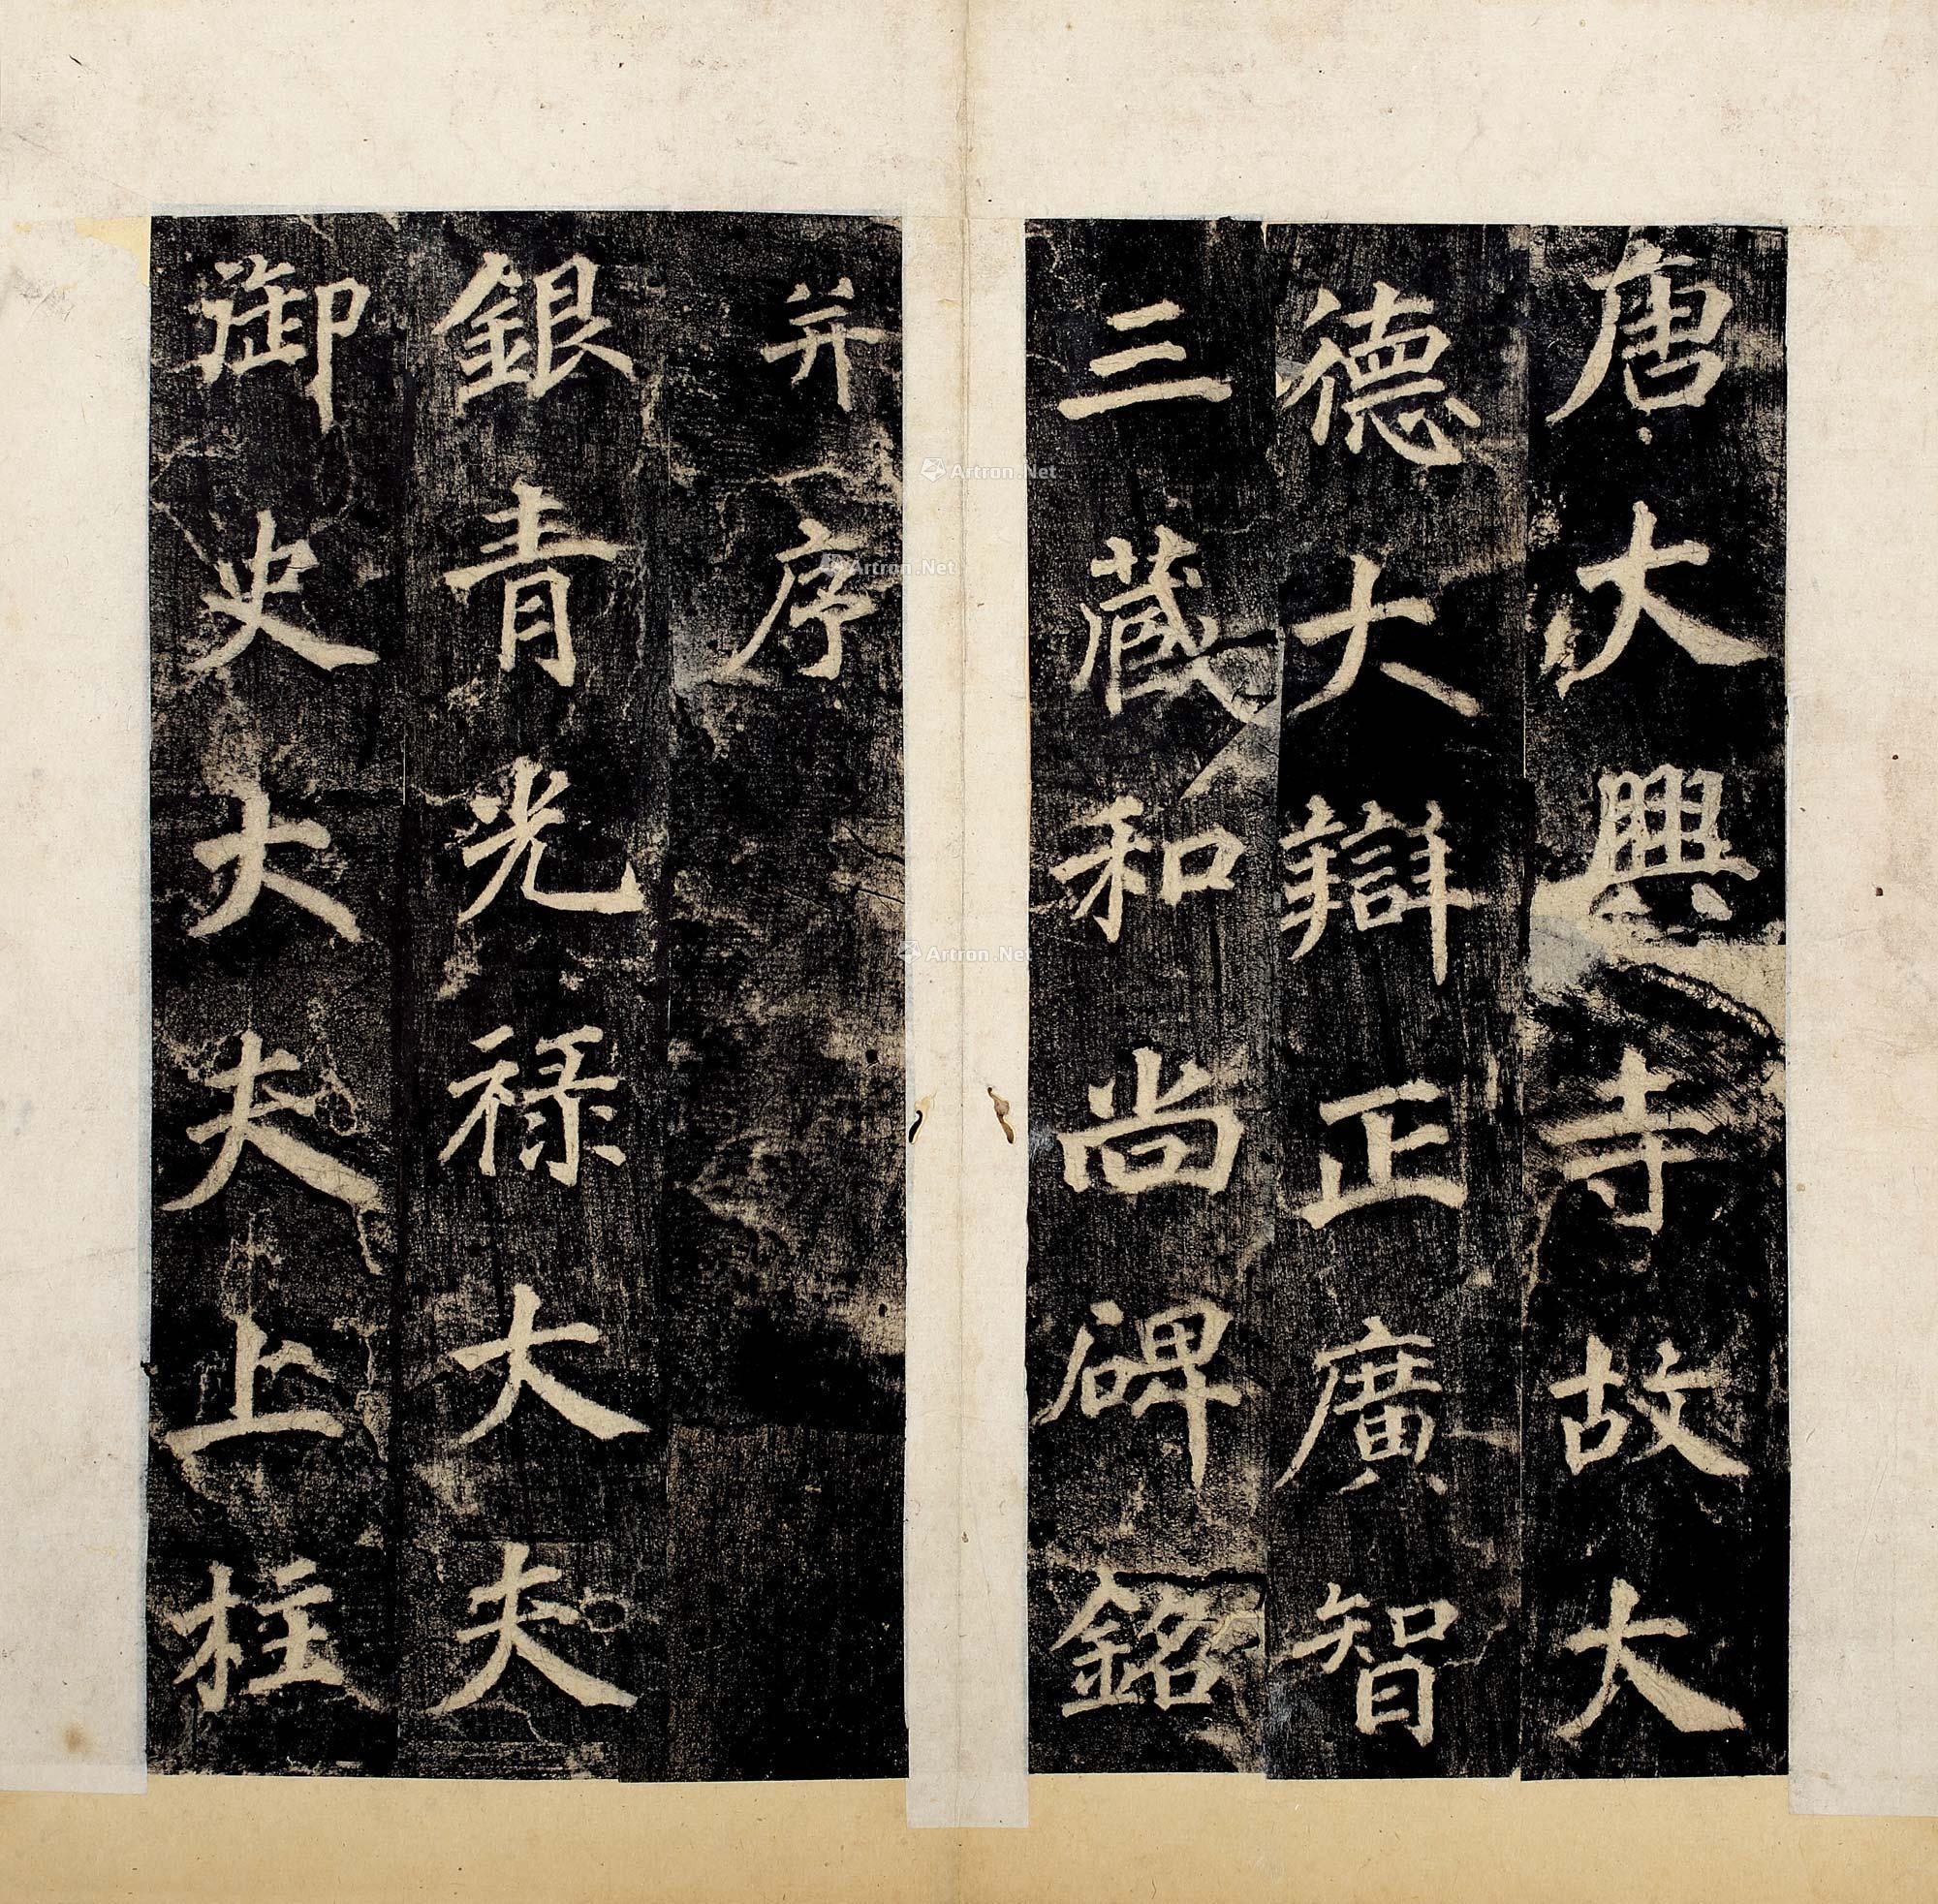 唐大興寺故大
德大辯正廣智
三藏和尚碑銘
并序
銀青光禄大夫
御史大夫上柱
Artron.Net
Artron.Net
Artron.Net